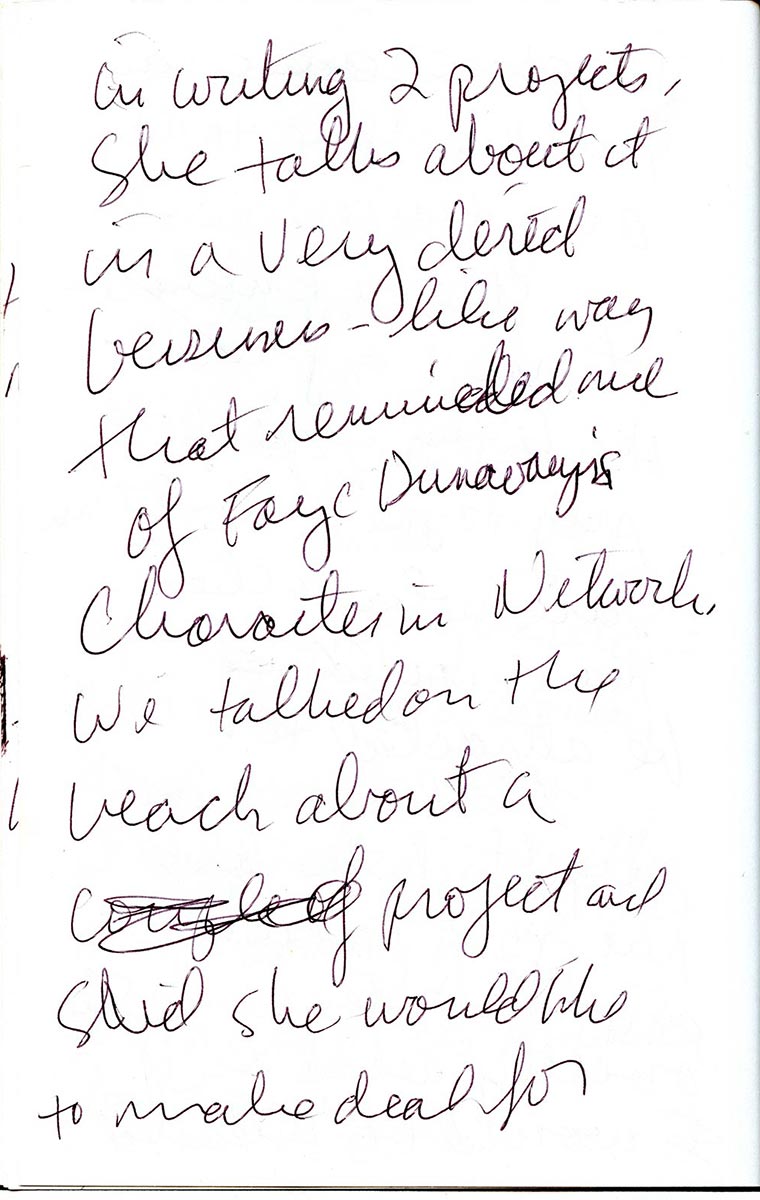 in writing 2 projects,
She talks about it
in a very
business-like way
that reminded me
of Faye Dunaway's
Character in Network.
We talked on the
beach about a
couple of project and
said she would like
to make deal for